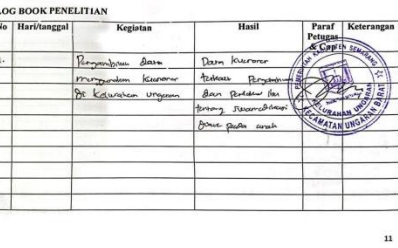 LOG BOOK PENELITIAN
No Hari/tanggal Kegiatan Hasil Paraf Petugas & Cap Keterangan
Pengambilan data Data kuesioner
menggunakan kuesioner terkait
di Kelurahan Ungaran dan perilaku ibu
tentang swamedikasi
pada anak
PEMERINTAH KABUPATEN SEMARANG
KELURAHAN UNGARAN
KECAMATAN UNGARAN BARAT
11